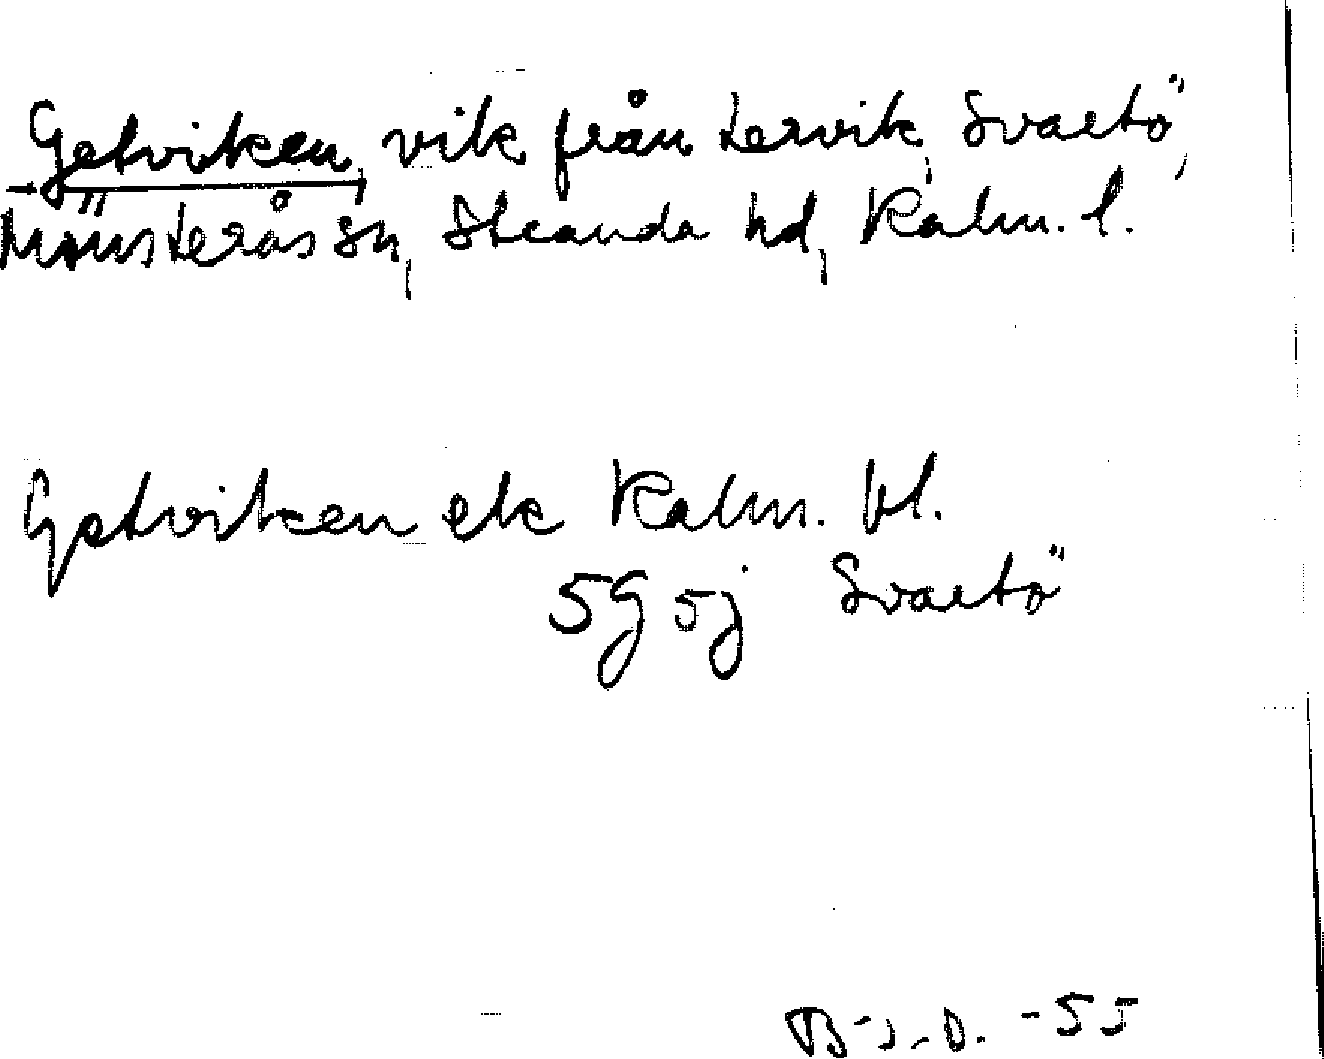 Getviken, vik från Lervik, Svartö,
Mönsterås sn, Stranda hd, Kalm. l.
Getviken ek Kalm. bl.
5G 5j Svartö
-55